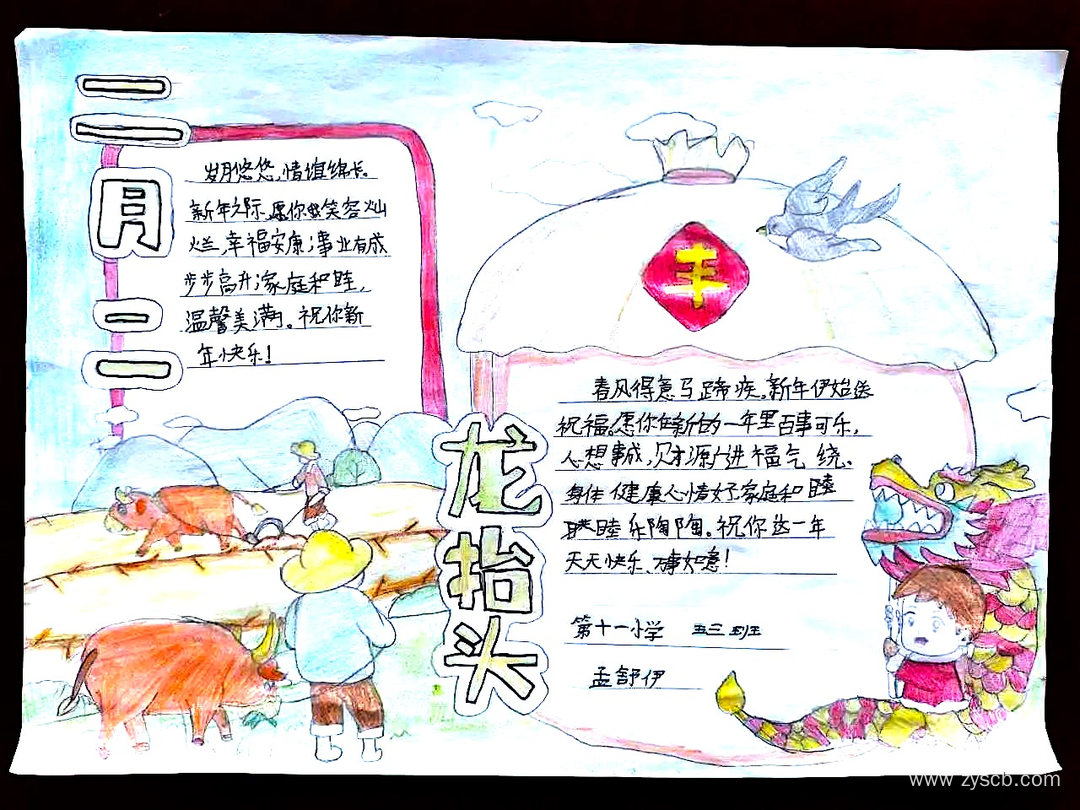 二月二
岁月悠悠，情谊绵长。
新年之际，愿你笑容灿
烂，幸福安康；事业有成
步步高升；家庭和睦，
温馨美满。祝你新
年快乐！
丰
龙抬头
春风得意马蹄疾。新年伊始送
祝福。愿你在新的一年里百事可乐，
心想事成，财源广进福气 绕、
身体健康心情好、家庭和睦
睦乐陶陶。祝你这一年
天天快乐、事如意！
第十一小学 五三班
孟舒伊
www.zyscb.com